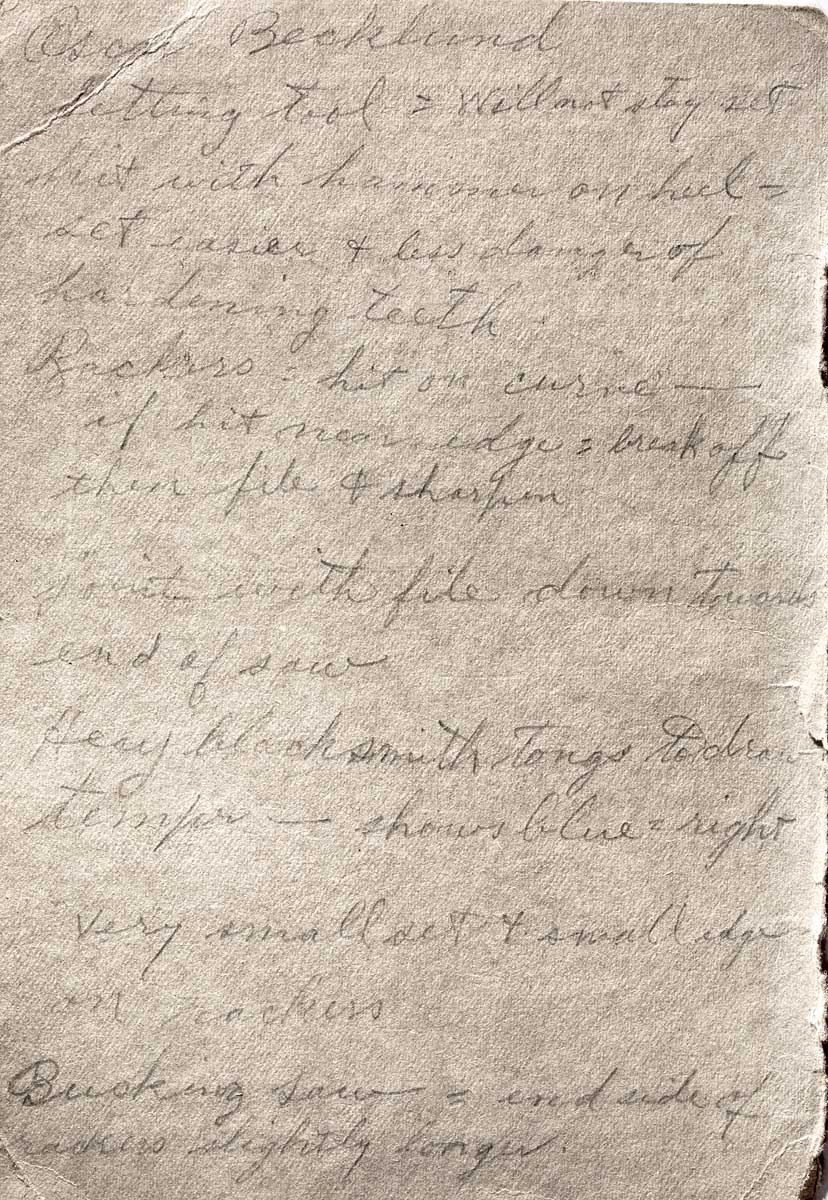 Oscar Becklund
Setting tool = Will not stay set
hit with hammer on heel =
set easier & less danger of
hardening teeth
Rackers = hit on curve —
if hit near edge = break off
then file & sharpen
joint with file down towards
end of saw
Heavy blacksmith tongs to draw
temper — shows blue = right
Very small set & small edge
on rackers
Bucking saw = end side of
rackers slightly longer.